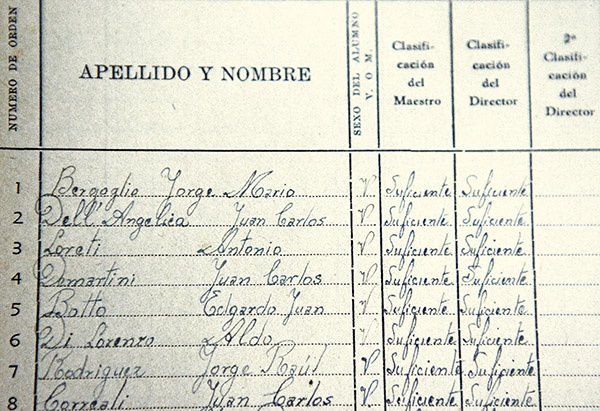 NUMERO DE ORDEN
APELLIDO Y NOMBRE
SEXO DEL ALUMNO
V. O M.
Clasifi-
cación
del
Maestro
Clasifi-
cación
del
Director
2ª
Clasifi-
cación
del
Director
1 Bergaglio Jorge Mario V Suficiente Suficiente
2 Dell' Angelica Juan Carlos V Suficiente Suficiente
3 Loreti Antonio V Suficiente Suficiente
4 Demartini Juan Carlos V Suficiente Suficiente
5 Botto Edgardo Juan V Suficiente Suficiente
6 Di Lorenzo Aldo V Suficiente Suficiente
7 Rodriguez Jorge Raúl V Suficiente Suficiente
8 Juan Carlos V Suficiente Suficiente